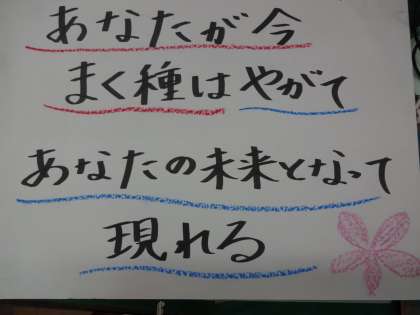 あなたが今
まく種はやがて
あなたの未来となって
現れる